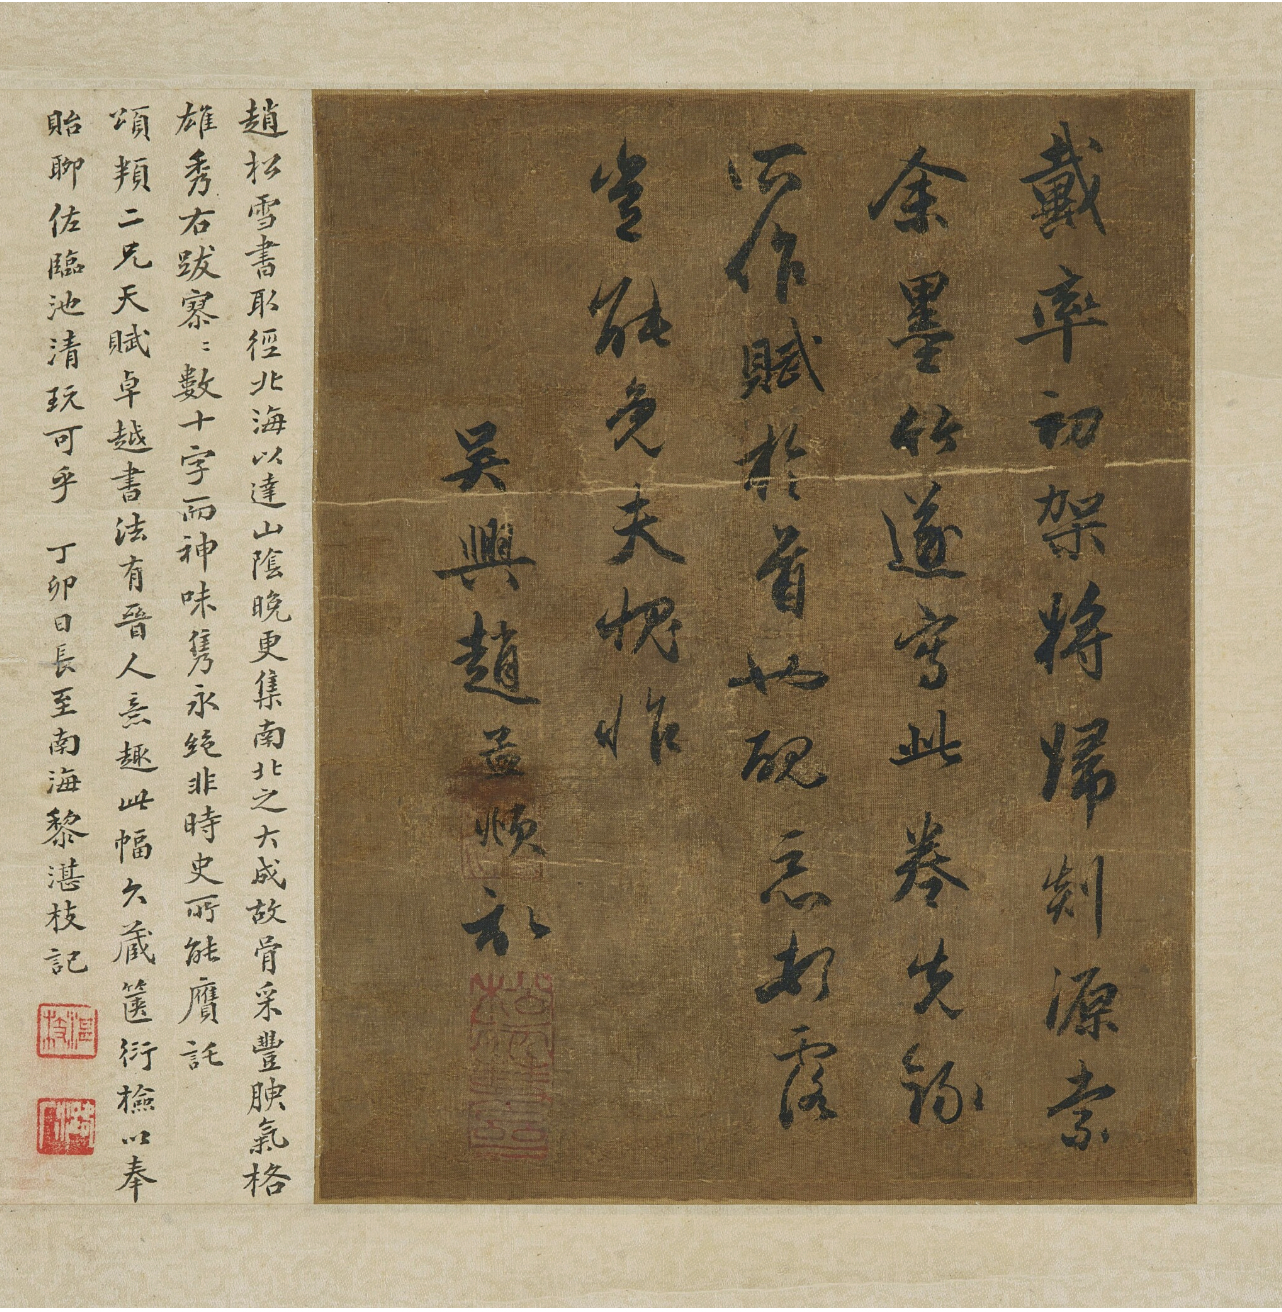 戴率初架將歸剡源索
余墨竹遂寫此卷先錄
所作賦於首也醜惡敗露
豈能免夫愧怍
吳興趙孟頫記
趙松雪書取徑北海以達山陰晚更集南北之大成故骨采豐腴氣格
雄秀右跋寥〻數十字而神味雋永絕非時史所能贗託
頌頖二兄天賦卓越書法有晉人意趣此幅久藏篋衍檢以奉
貽聊佐臨池清玩可乎 丁卯日長至南海黎湛枝記
湛枝